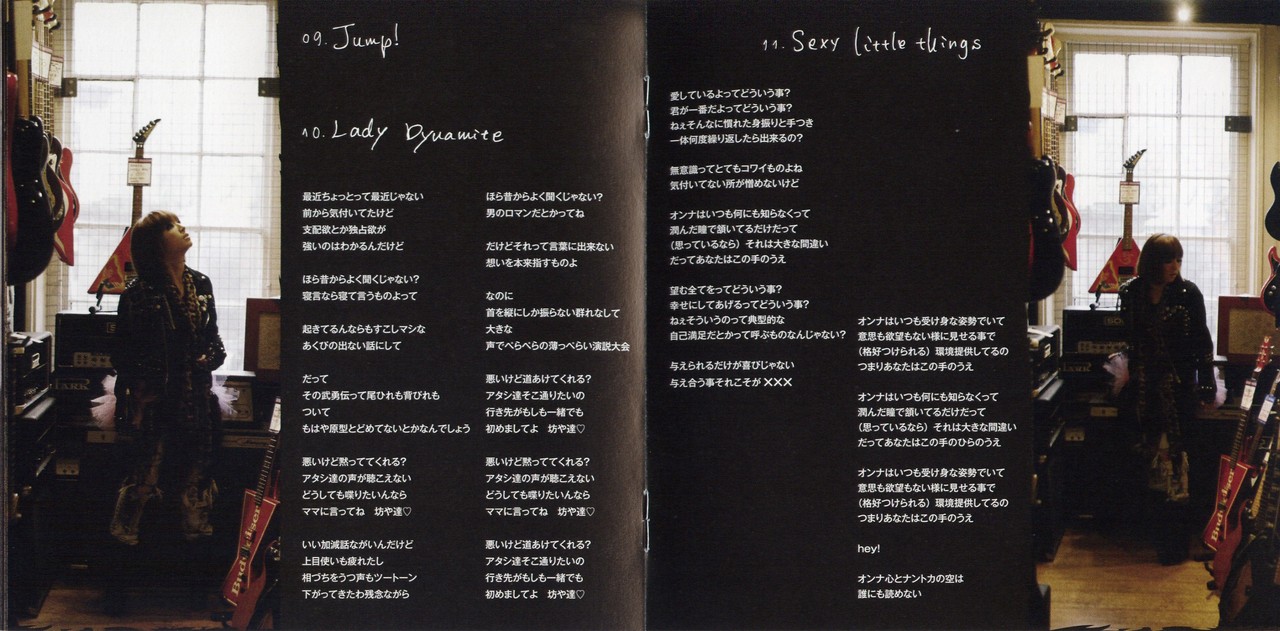 09. Jump!
10. Lady Dynamite
最近ちょっとって最近じゃない
前から気付いてたけど
支配欲とか独占欲が
強いのはわかるんだけど
ほら昔からよく聞くじゃない?
寝言なら寝て言うものよって
起きてるんならもすこしマシな
あくびの出ない話にして
だって
その武勇伝って尾ひれも背びれも
ついて
もはや原型とどめてないとかなんでしょう
悪いけど黙っててくれる?
アタシ達の声が聴こえない
どうしても喋りたいんなら
ママに言ってね 坊や達♡
いい加減話ながいんだけど
上目使いも疲れたし
相づちをうつ声もツートーン
下がってきたわ残念ながら
ほら昔からよく聞くじゃない?
男のロマンだとかってね
だけどそれって言葉に出来ない
想いを本来指すものよ
なのに
首を縦にしか振らない群れなして
大きな
声でぺらぺらの薄っぺらい演説大会
悪いけど道あけてくれる?
アタシ達そこ通りたいの
行き先がもしも一緒でも
初めましてよ 坊や達♡
悪いけど黙っててくれる?
アタシ達の声が聴こえない
どうしても喋りたいんなら
ママに言ってね 坊や達♡
悪いけど道あけてくれる?
アタシ達そこ通りたいの
行き先がもしも一緒でも
初めましてよ 坊や達♡
11. Sexy little things
愛しているよってどういう事?
君が一番だよってどういう事?
ねぇそんなに慣れた身振りと手つき
一体何度繰り返したら出来るの?
無意識ってとてもコワイものよね
気付いてない所が憎めないけど
オンナはいつも何にも知らなくって
潤んだ瞳で頷いてるだけだって
(思っているなら) それは大きな間違い
だってあなたはこの手のうえ
望む全てをってどういう事?
幸せにしてあげるってどういう事?
ねぇそういうのって典型的な
自己満足だとかって呼ぶものなんじゃない?
与えられるだけが喜びじゃない
与え合う事それこそが ×××
オンナはいつも受け身な姿勢でいて
意思も欲望もない様に見せる事で
(格好つけられる) 環境提供してるの
つまりあなたはこの手のうえ
オンナはいつも何にも知らなくって
潤んだ瞳で頷いてるだけだって
(思っているなら) それは大きな間違い
だってあなたはこの手のひらのうえ
オンナはいつも受け身な姿勢でいて
意思も欲望もない様に見せる事で
(格好つけられる) 環境提供してるの
つまりあなたはこの手のうえ
hey!
オンナ心とナントカの空は
誰にも読めない
Budweiser